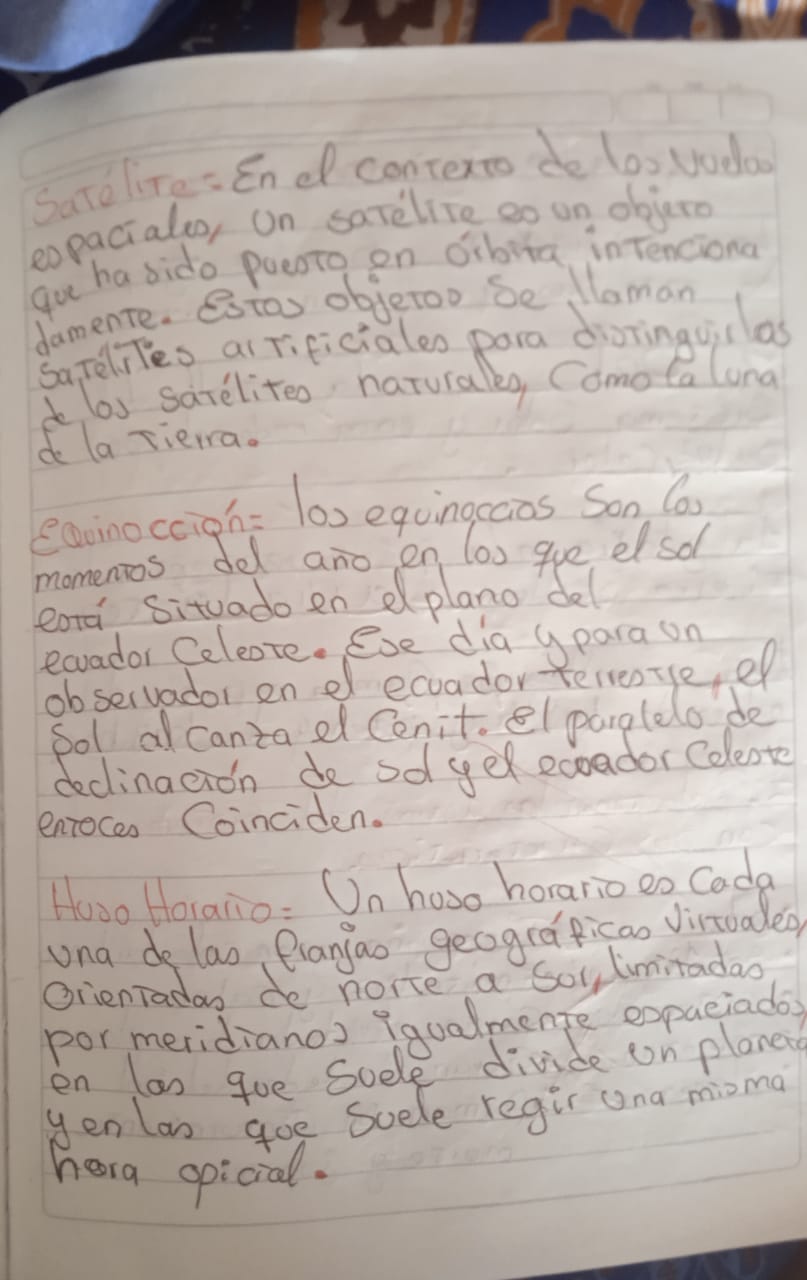 Satélite = En el contexto de los vuelos
espaciales, un satélite es un objeto
que ha sido puesto en órbita intenciona
damente. Estos objetos se llaman
satélites artificiales para distinguirlas
de los satélites naturales, Como la luna
de la tierra.
Equinocción = los equinoccios son los
momentos del año en los que el sol
está situado en el plano del
ecuador Celeste. Ese día y para un
observador en el ecuador terrestre, el
sol alcanza el Cenit. El paralelo de
declinación de sol y el ecuador Celeste
entoces Coinciden.
Huso Horario = Un huso horario es Cada
una de las franjas geográficas virtuales,
orientadas de norte a sur, limitadas
por meridianos igualmente espaciados,
en las que suele divide un planeta
y en las que suele regir una misma
hora opicial.